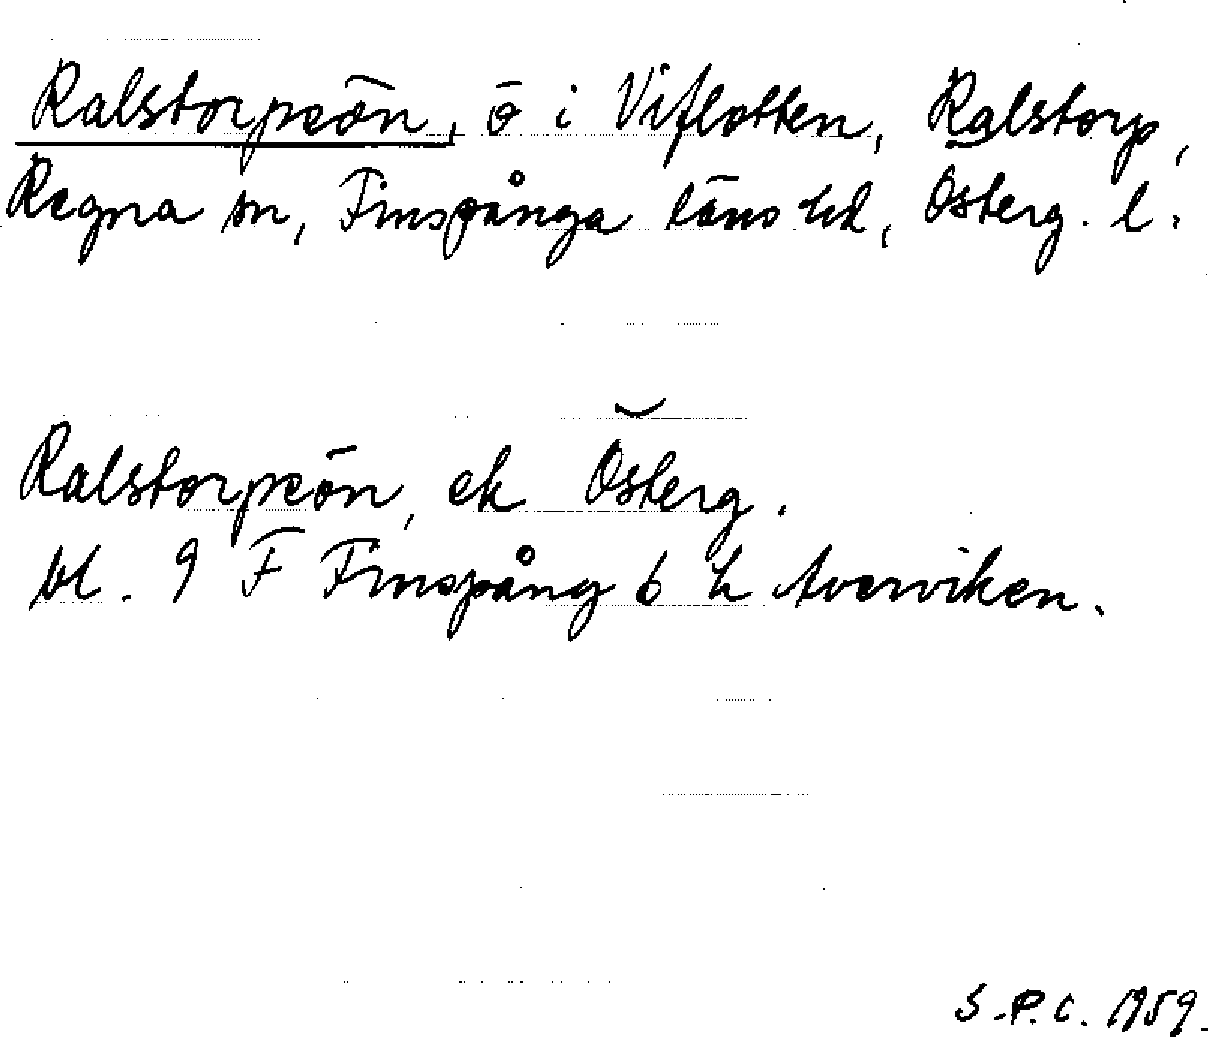 Ralstorpeön, ö i Viflotten, Ralstorp,
Regna sn, Finspånga läns hd, Österg. l.
Ralstorpeön, ek Österg.
bl. 9 F Finspång 6 h Averviken.
S.P.C. 1959.